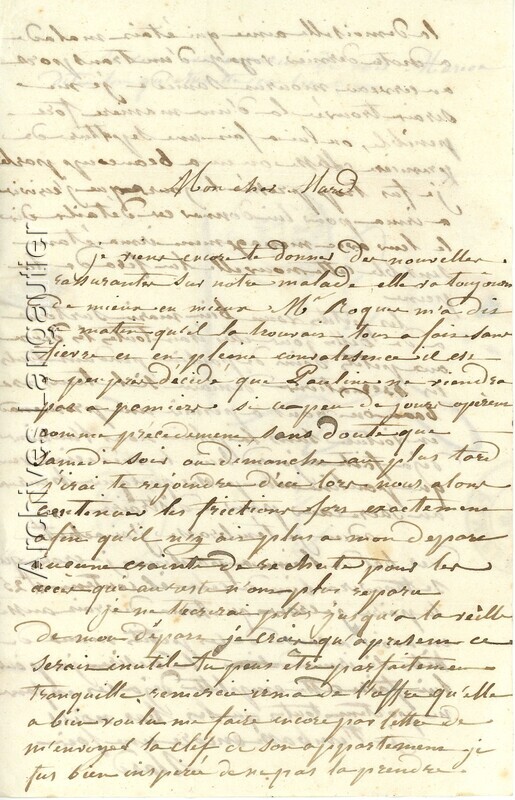 Mon cher Mard
je viens encore te donner des nouvelles
rassurantes sur notre malade elle va toujours
de mieux en mieux Mr Roques m'a dit
ce matin qu'il la trouvait tout a fait sans
fievre et en pleine convalesence il est
a peu près décidé que Pauline ne viendra
pas a si peu de jours
comme precedement sans doute que
samedi soir ou dimanche au plus tard
j'irai te rejoindre d'ici lors nous alons
continuer les frictions fort exactement
afin qu'il n'y ait plus a mon depart
aucune crainte de rechute pour les
accès que au reste n'ont plus reparu
je ne t'ecrirai plus jusqu'a la veille
de mon départ je crois qu'apresent ce
serait inutile tu peus etre parfaitement
tranquille remercie de l'offre qu'elle
a bien voulu me faire encore par lettre de
m'envoyer la clef de son appartement je
fus bien inspirée de ne pas la prendre.
Archives Langaultier